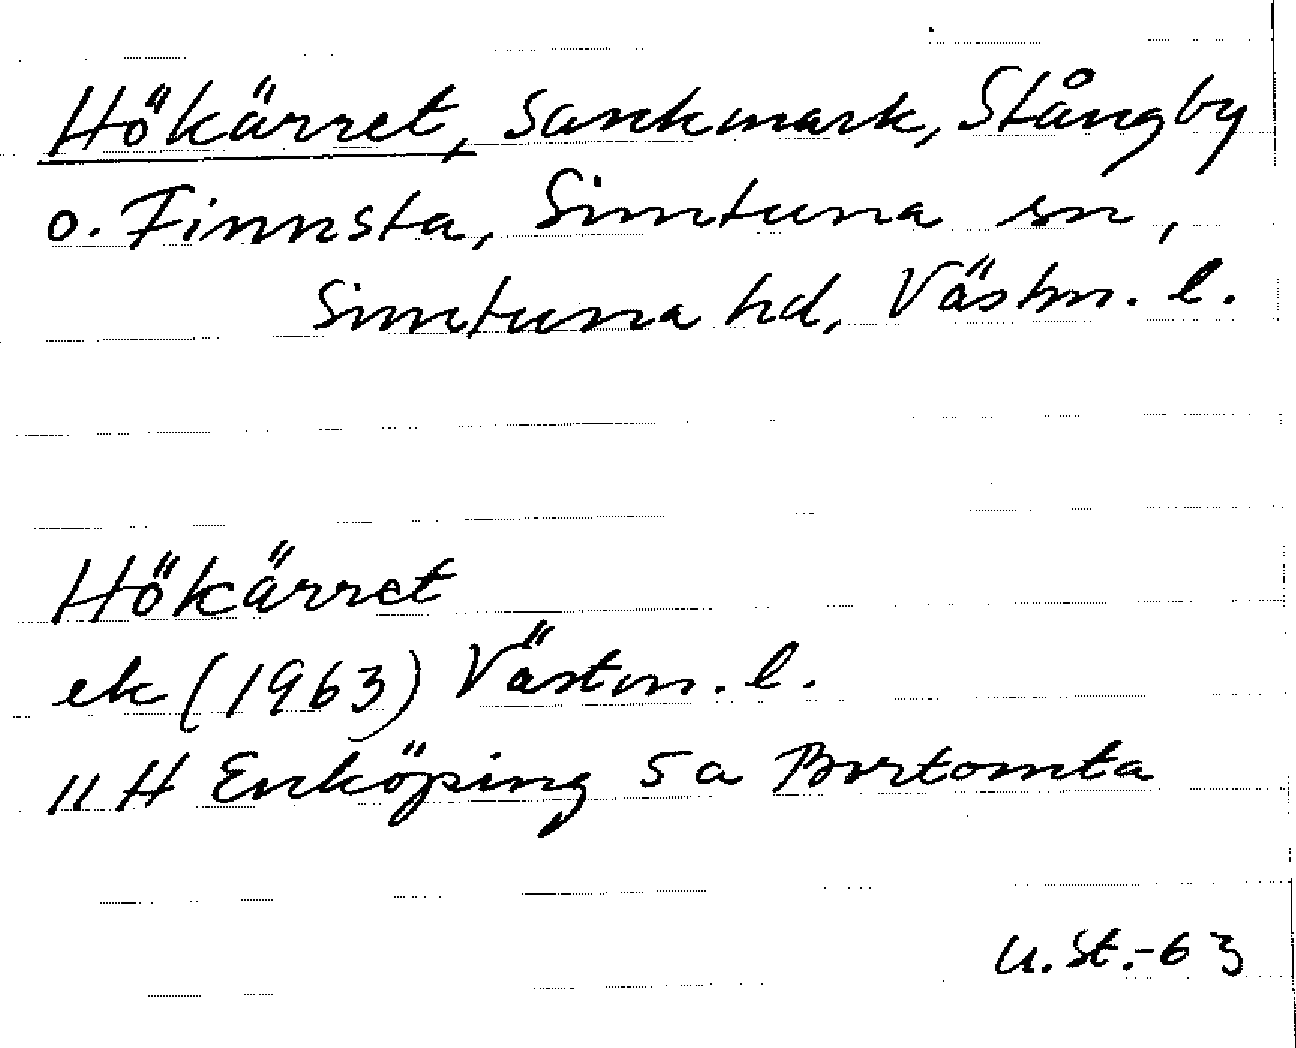 Hökärret, Sankmark, Stångby
o. Finnsta, Simtuna sn,
Simtuna hd, Västm. l.
Hökärret
ek (1963) Västm. l.
11 H Enköping 5a Brrtomta
U. St. -63